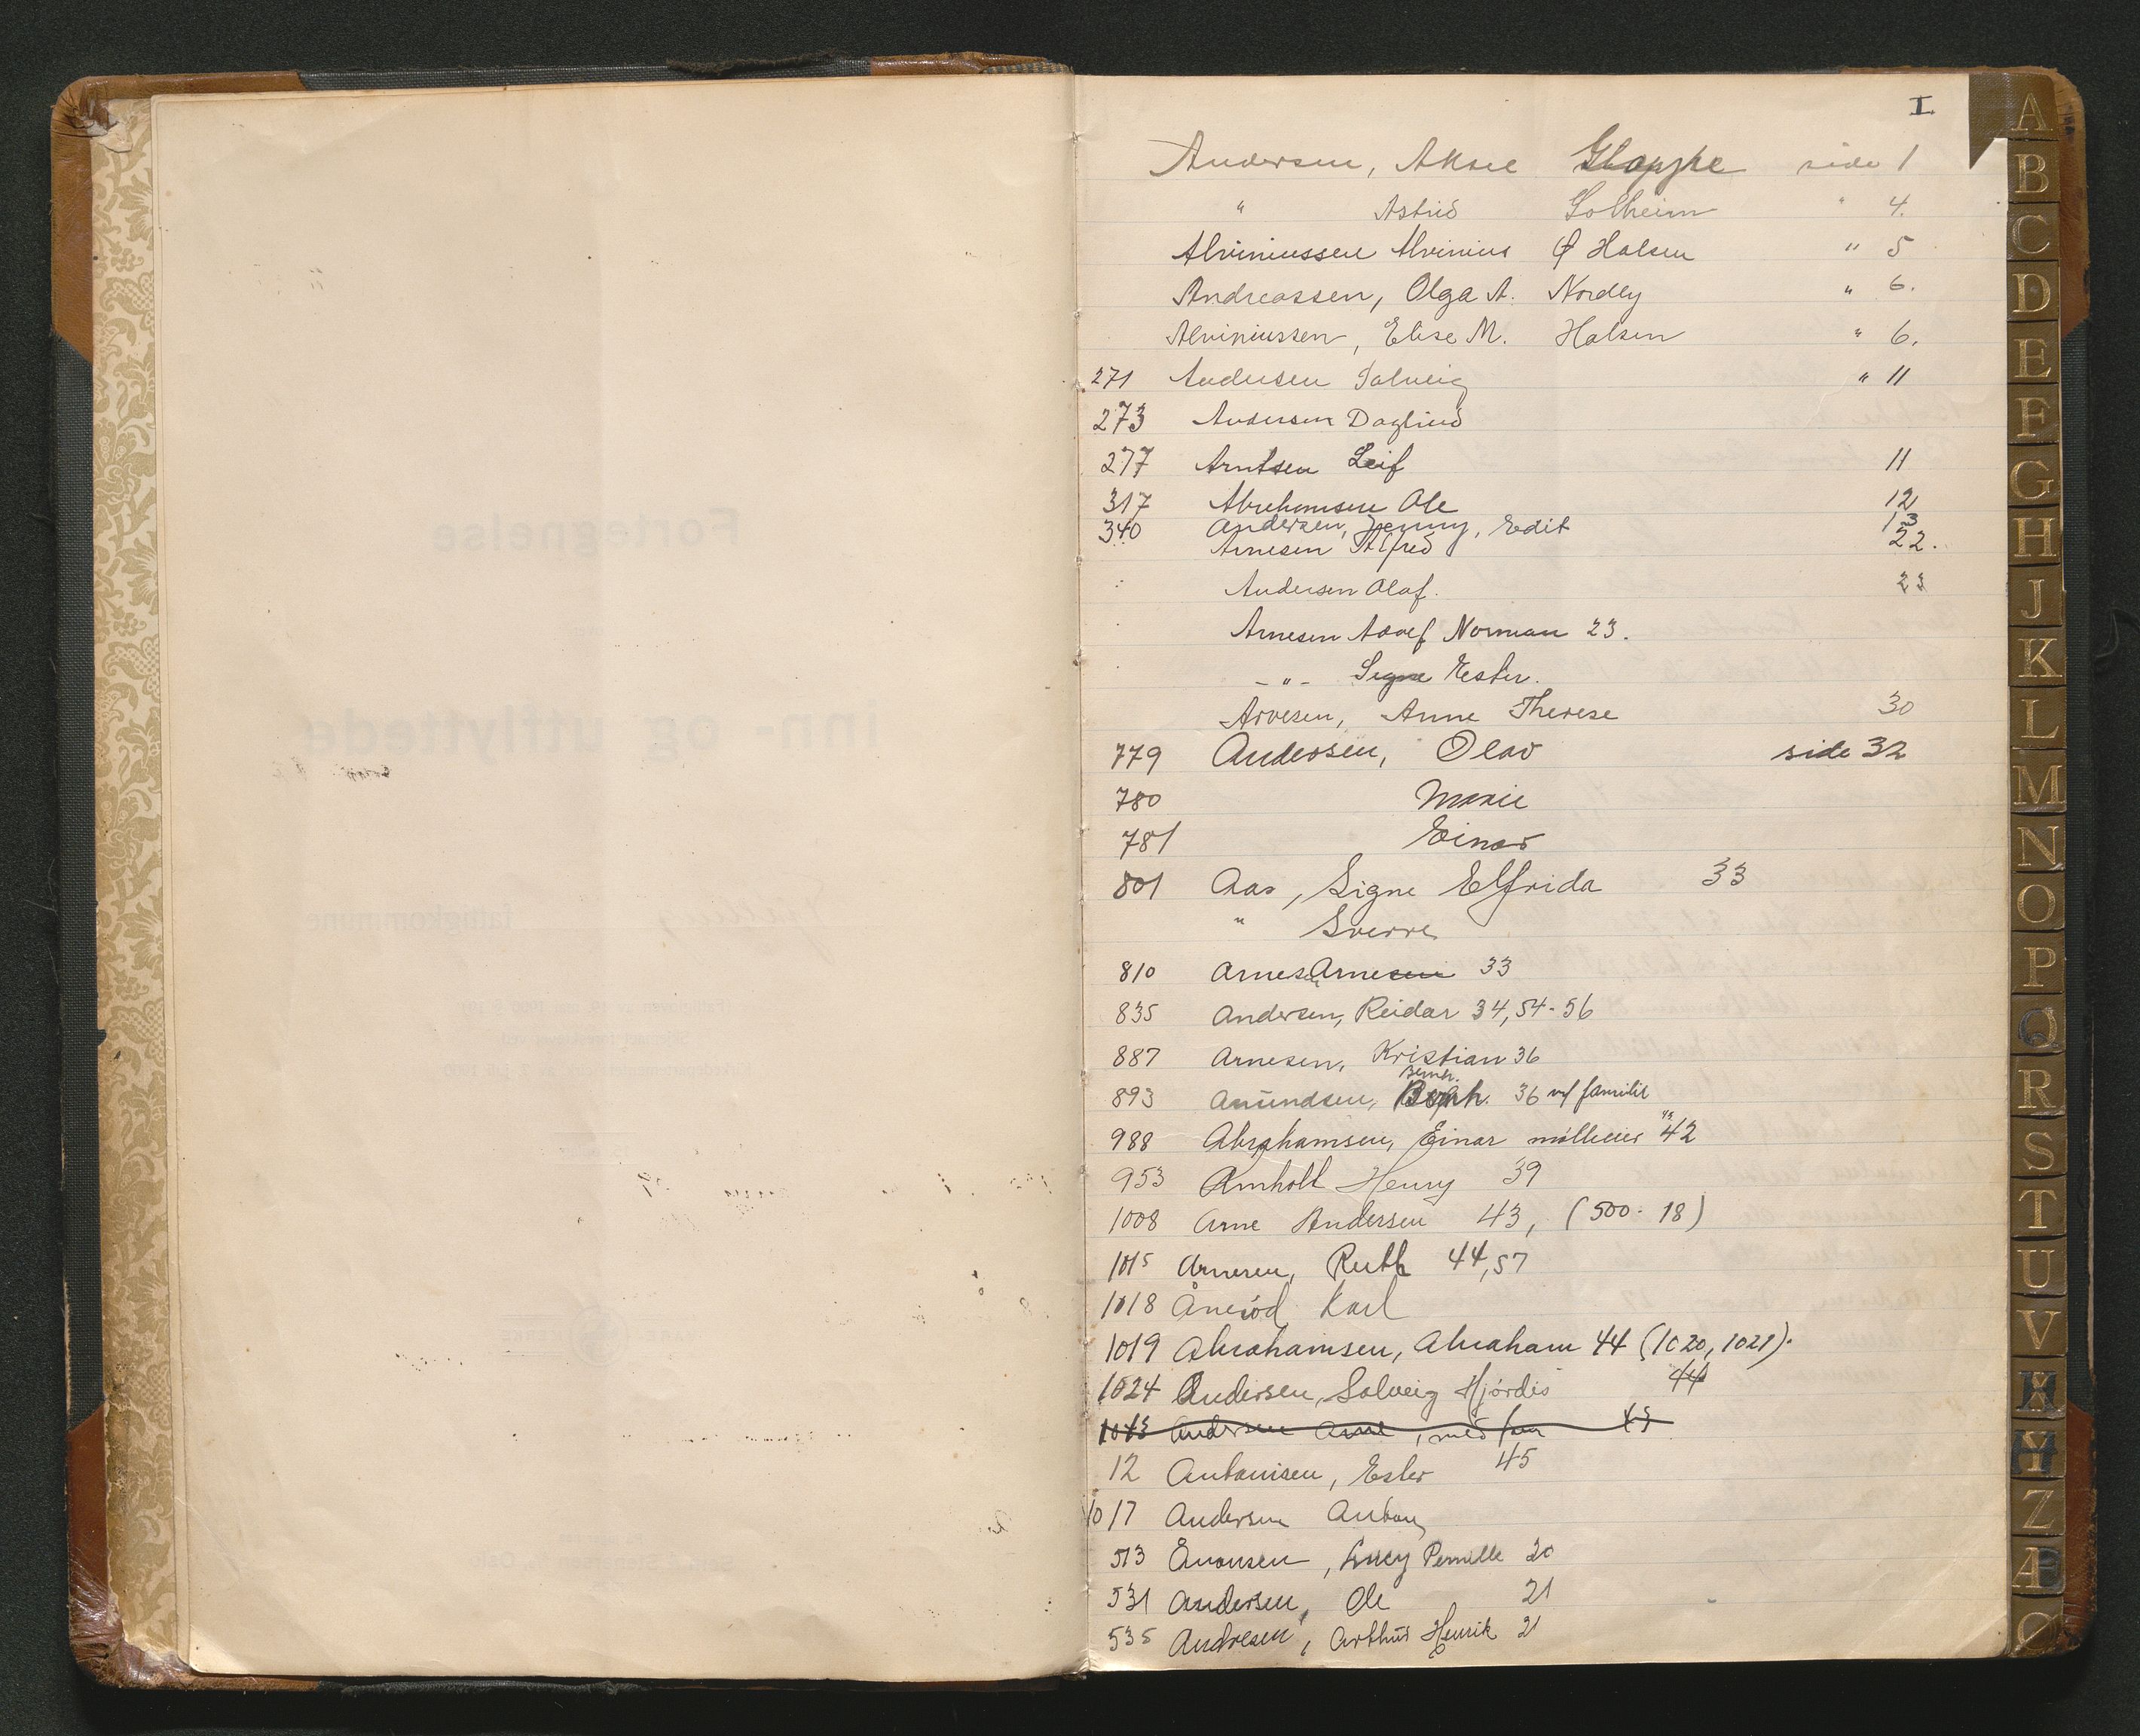 I
Andersen, Aksel Gloppe side 1
" Astrid Solheim " 4.
Alviniussen Alvinius Ø Halsen " 5
Andreassen, Olga A. Nordby " 6.
Alviniussen, Elise M. Halsen " 6.
271 Andersen Solveig " 11
273 Andersen Dagfind
277 Arntsen Leif 11
317 Abrehamsen Ole 12
340 Andersen, Jenny, Edit 13
Arnesen Alfred 22.
Andersen Olaf. 23
Arnesen Adolf Norman 23.
- " - Signe Ester.
Arvesen, Anne Therese 30
779 Andersen, Olav side 32
780 Marie
781 Einar
801 Aas, Signe Elfrida 33
" Sverre
810 Arnesen Arnesen 33
835 Andersen, Reidar 34, 54-56
887 Arnesen, Kristian 36
Bernh.
893 Amundsen, Bernh. 36 m/ familie
988 Abrahamsen, Einar 42
953 Arnholt Henry 39
1008 Arne Andersen 43, (500-18)
1015 Arnesen, Ruth 44, 57
1018 Åneröd Karl
1019 Abrahamsen, Abraham 44 (1020, 1021).
1024 Andersen, Solveig Hjördis 44
1043 Andersen Arne, med fam 45
12 Antonisen, Ester 45
1017 Andersen Anton
513 Enonsen, Lucy Pernille 20
531 Andersen, Ole 21
535 Andresen, Arthur Henrik 21
A
B
C
D
E
F
G
H
J
K
L
M
N
O
P
Q
R
S
T
U
V
X
Y
Z
Æ
Ø
Fortegnelse
inn- og utflyttede
fattigkommune